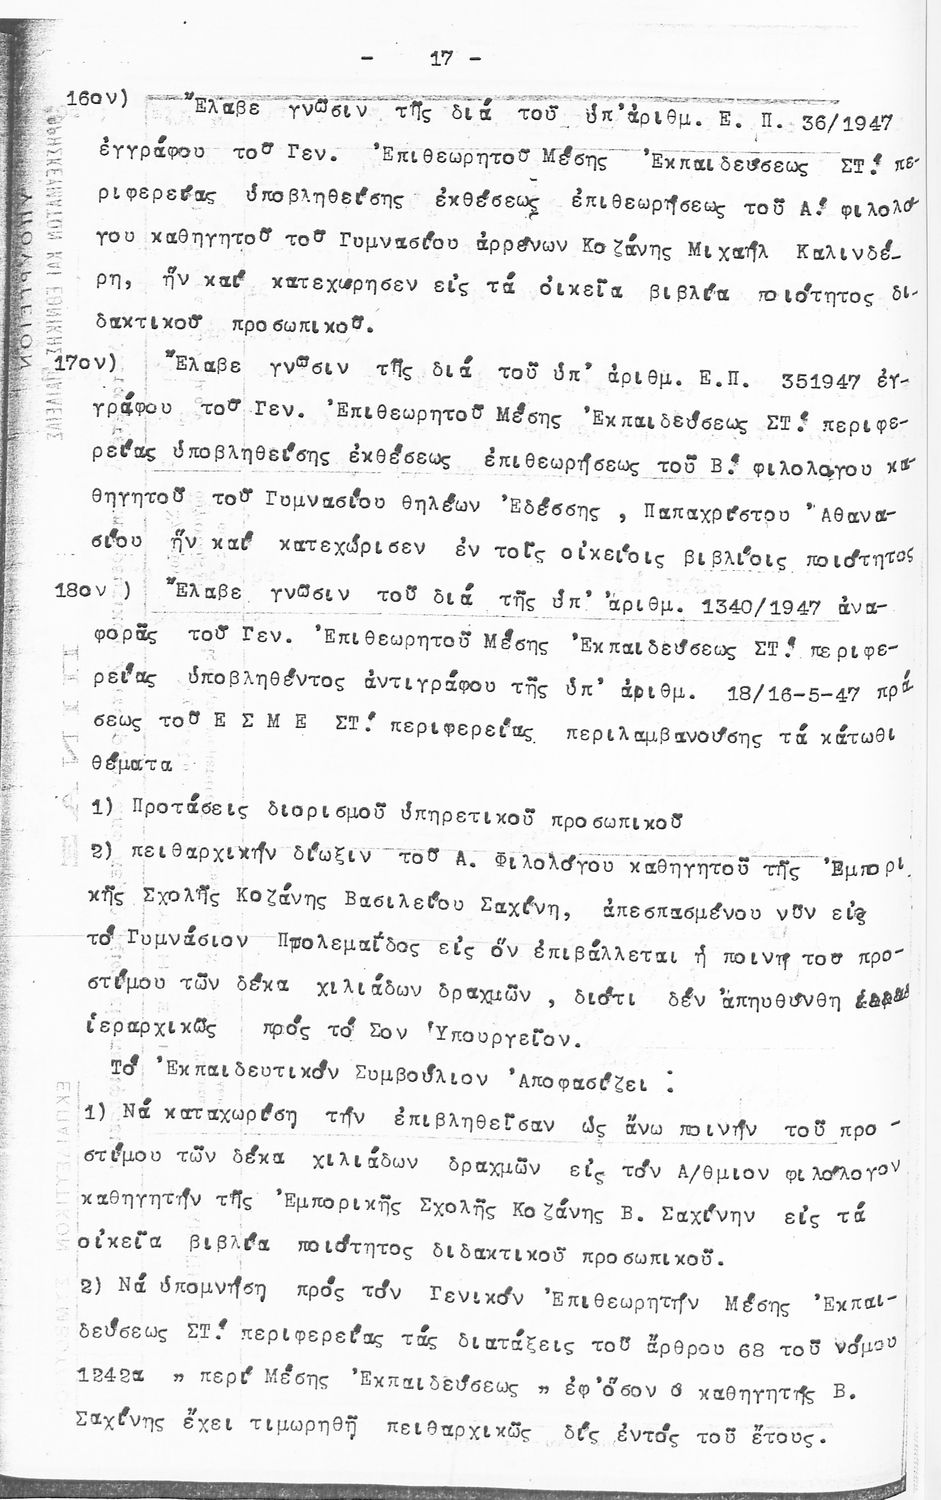 - 17 -
16ον) Ἔλαβε γνῶσιν τῆς διά τοῦ ὑπ' ἀριθμ. Ε. Π. 36/1947
ἐγγράφου τοῦ Γεν. Ἐπιθεωρητοῦ Μέσης Ἐκπαιδεύσεως ΣΤ! πε-
ριφερείας ὑποβληθείσης ἐκθέσεως ἐπιθεωρήσεως τοῦ Α! φιλολό-
γου καθηγητοῦ τοῦ Γυμνασίου ἀρρένων Κοζάνης Μιχαήλ Καλινδέ-
ρη, ἥν καί κατεχώρησεν εἰς τά οἰκεῖα βιβλία ποιότητος δι-
δακτικοῦ προσωπικοῦ.
17ον) Ἔλαβε γνῶσιν τῆς διά τοῦ ὑπ' ἀριθμ. Ε.Π. 351947 ἐγ-
γράφου τοῦ Γεν. Ἐπιθεωρητοῦ Μέσης Ἐκπαιδεύσεως ΣΤ! περιφε-
ρείας ὑποβληθείσης ἐκθέσεως ἐπιθεωρήσεως τοῦ Β! φιλολόγου κα-
θηγητοῦ τοῦ Γυμνασίου θηλέων Ἐδέσσης , Παπαχρίστου Ἀθανα-
σίου ἥν καί κατεχώρισεν ἐν τοῖς οἰκείοις βιβλίοις ποιότητος
18ον ) Ἔλαβε γνῶσιν τοῦ διά τῆς ὑπ' ἀριθμ. 1340/1947 ἀνα-
φορᾶς τοῦ Γεν. Ἐπιθεωρητοῦ Μέσης Ἐκπαιδεύσεως ΣΤ! περιφε-
ρείας ὑποβληθέντος ἀντιγράφου τῆς ὑπ' ἀριθμ. 18/16-5-47 πρά
σεως τοῦ Ε Σ Μ Ε ΣΤ! περιφερείας περιλαμβανούσης τά κάτωθι
θέματα
1) Προτάσεις διορισμοῦ ὑπηρετικοῦ προσωπικοῦ
2) πειθαρχικήν δίωξιν τοῦ Α. Φιλολόγου καθηγητοῦ τῆς Ἐμπορι
κῆς Σχολῆς Κοζάνης Βασιλείου Σαχίνη, ἀπεσπασμένου νῦν εἰς
τό Γυμνάσιον Πτολεμαΐδος εἰς ὅν ἐπιβάλλεται ἡ ποινή του προ-
στίμου τῶν δέκα χιλιάδων δραχμῶν , διότι δέν ἀπηυθύνθη
ἱεραρχικῶς πρός τό Σον Ὑπουργεῖον.
Τό Ἐκπαιδευτικόν Συμβούλιον Ἀποφασίζει :
1) Νά καταχωρίση τήν ἐπιβληθεῖσαν ὡς ἄνω ποινήν τοῦ προ -
στίμου τῶν δέκα χιλιάδων δραχμῶν εἰς τόν Α/θμιον φιλόλογον
καθηγητήν τῆς Ἐμπορικῆς Σχολῆς Κοζάνης Β. Σαχίνην εἰς τά
οἰκεῖα βιβλία ποιότητος διδακτικοῦ προσωπικοῦ.
2) Νά ὑπομνήση πρός τόν Γενικόν Ἐπιθεωρητήν Μέσης Ἐκπαι-
δεύσεως ΣΤ! περιφερείας τάς διατάξεις τοῦ ἄρθρου 68 τοῦ νόμου
1242α " περί Μέσης Ἐκπαιδεύσεως " ἐφ'ὅσον ὁ καθηγητής Β.
Σαχίνης ἔχει τιμωρηθῆ πειθαρχικῶς δίς ἐντός τοῦ ἔτους.